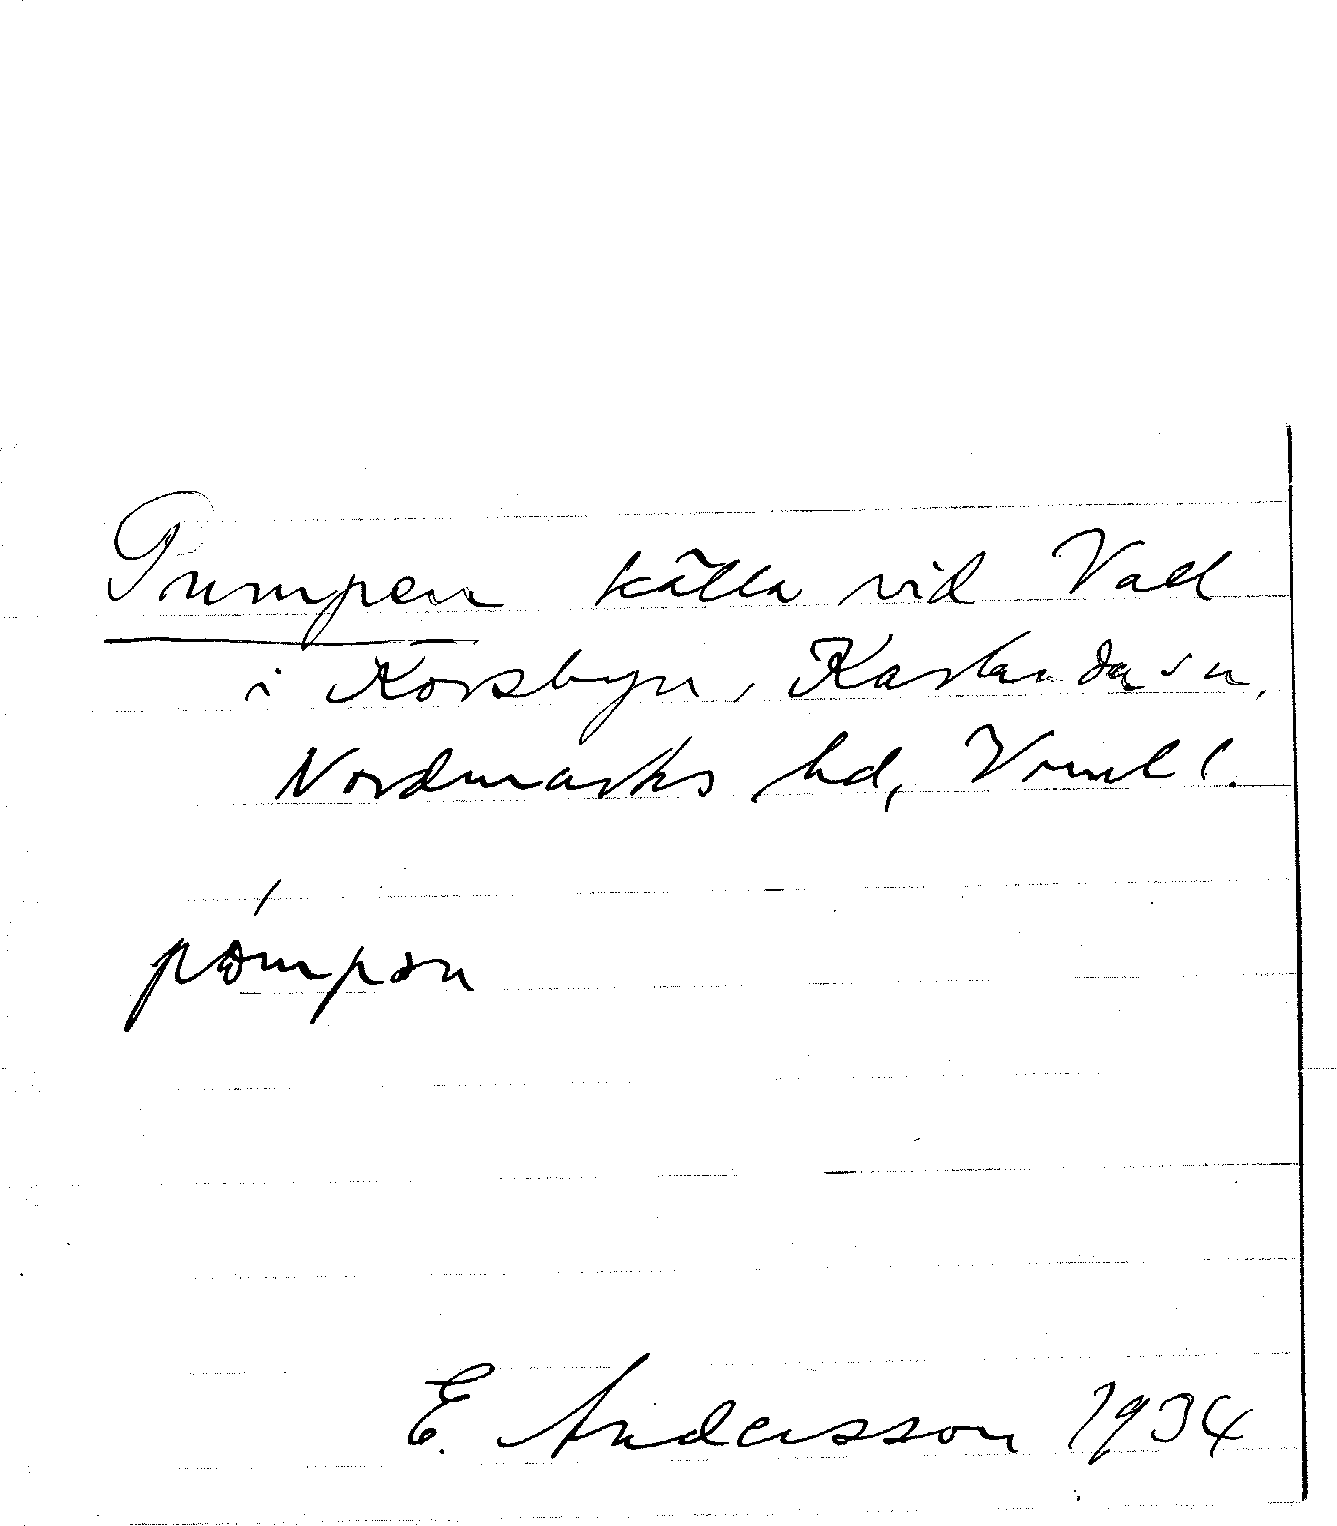 Pumpen källa vid Vall
i Korsbyn, Karlanda sn,
Nordmarks hd, Vrml l.
pómpən
E. Andersson 1934